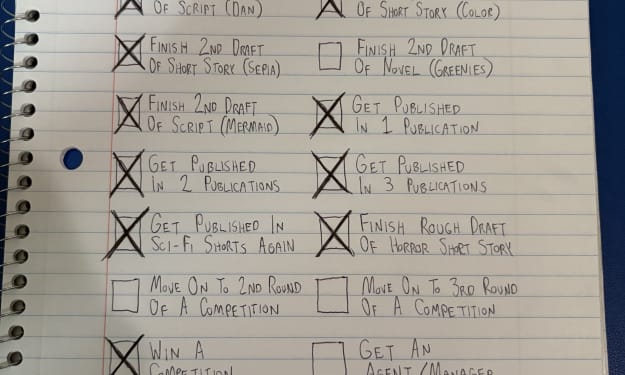 Of Script (Dan)
Of Short Story (Color)
Finish 2nd Draft
Of Short Story (Sepia)
Finish 2nd Draft
Of Novel (Greenies)
Finish 2nd Draft
Of Script (Mermaid)
Get Published
In 1 Publication
Get Published
In 2 Publications
Get Published
In 3 Publications
Get Published In
Sci-Fi Shorts Again
Finish Rough Draft
Of Horror Short Story
Move On To 2nd Round
Of A Competition
Move On To 3rd Round
Of A Competition
Win A
Competition
Get An
Agent/Manager